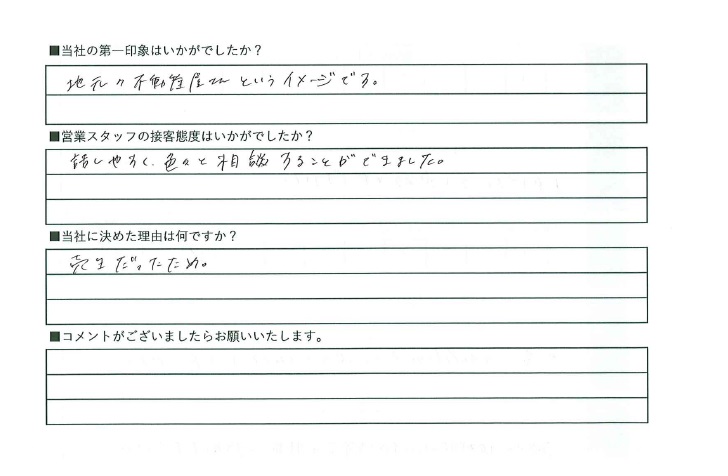 ■当社の第一印象はいかがでしたか？
地元の不動産屋さんというイメージです。
■営業スタッフの接客態度はいかがでしたか？
話しやすく、色々と相談することができました。
■当社に決めた理由は何ですか？
売主だったため。
■コメントがございましたらお願いいたします。